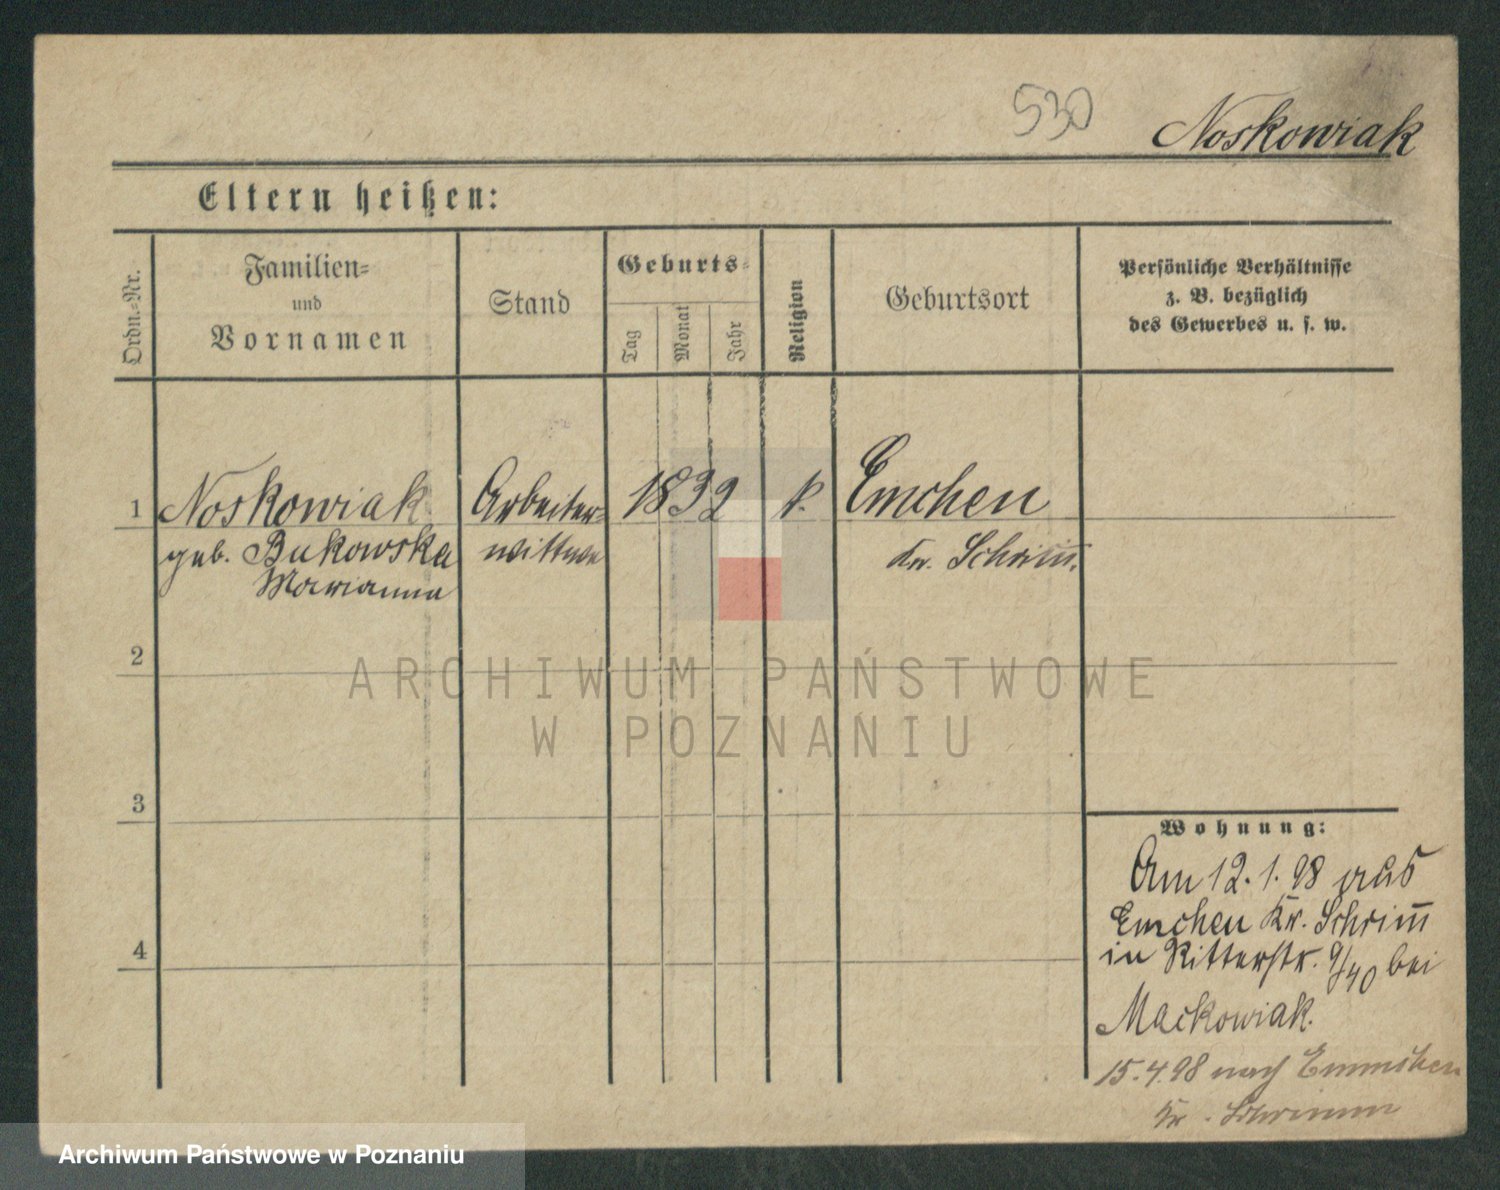 530
Noskowiak
Eltern heißen:
Ordn.-Nr.
Familien-
und
Vornamen
Stand
Geburts-
Tag
Monat
Jahr
Religion
Geburtsort
Persönliche Verhältnisse
z. B. bezüglich
des Gewerbes u. s. w.
1 Noskowiak Arbeiter- 1832 k. Emchen
geb. Bukowska wittwe Kr. Schrim̄.
Marianna
2
3
4
Wohnung:
Am 12.1.98 aus
Emchen Kr. Schrim̄
in Ritterstr. 9/40 bei
Mackowiak.
15.4.98 nach
Kr. Schrimm
ARCHIWUM PAŃSTWOWE
W POZNANIU
Archiwum Państwowe w Poznaniu